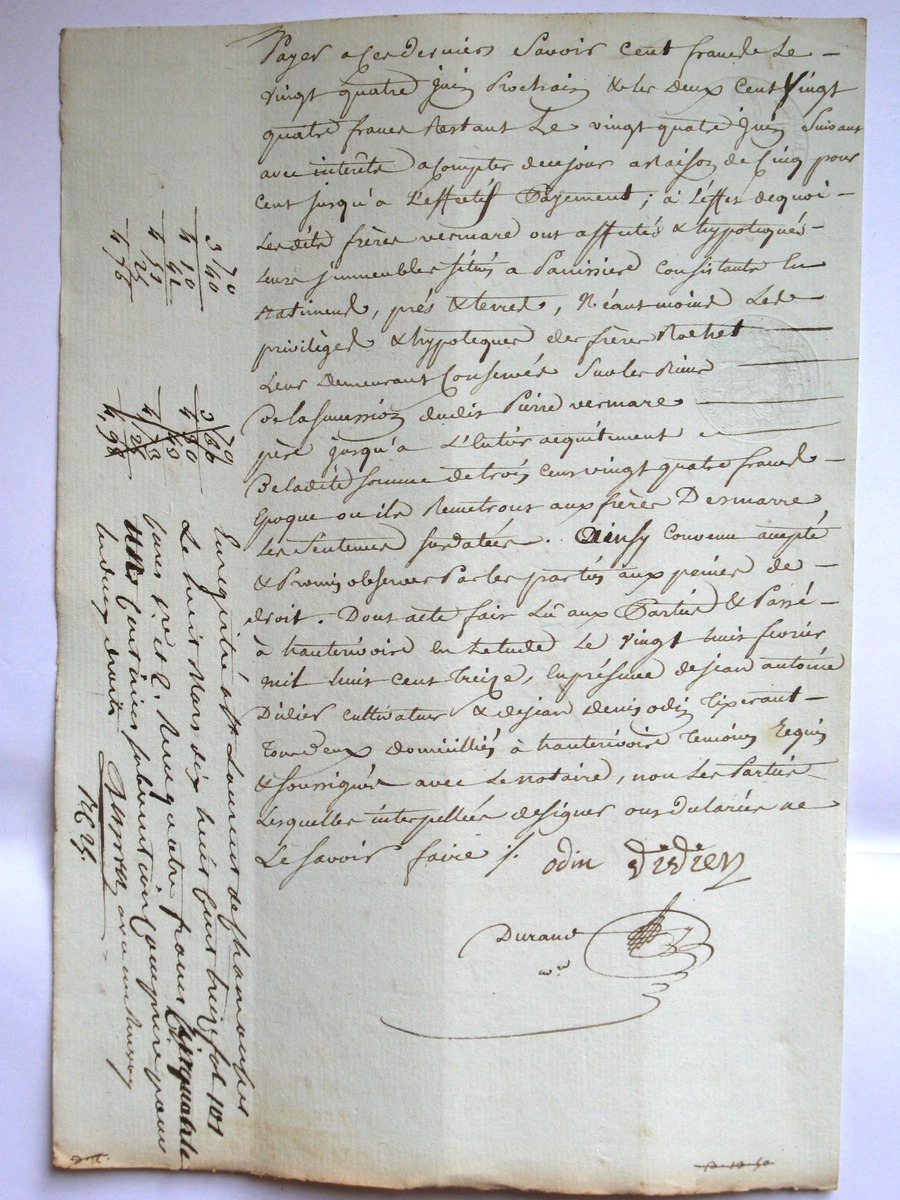 Payer a ces derniers Savoir cent francs Le
vingt quatre juin Prochain & les deux cent Vingt
quatre francs Restant Le vingt quatre juin Suivant
avec interêts a compter de ce jour a raison de Cinq pour
cent jusqu'a L'effectif Payement ; à L'effet de quoi
Lesdits frères vermare ont affectés & hypotequés
Leurs jmmeubles situés a Panissiere Consistants En
Batiments, prés & terres, Néantmoins Les
privilèges & hypoteques des frères Rochet
Leur demeurant Conservés Sur les Biens
De la succession dudit Pierre vermare
père jusqu'a L'Entier acquitement
De ladite Somme de trois cent vingt quatre francs
Epoque ou ils Remettront aux frères Desmarre
Les Sentences susdatées. Ainsy convenu accepté
& Promis observer Par les parties aux peines de
droit. Dont acte fait Lû aux Parties & Passé
à hauterivoire En Letude Le Vingt huit fevrier
mil huit cent treize, En présence de jean antoine
Didier cultivateur & de jean denis odin Tixerant
Tous deux domiciliés à hauterivoire Temoins Requis
& soussignés avec Le notaire, non Les Parties
Lesquelles interpellées de signer ont déclarées ne
Le Savoir faire ./.
odin Didier
Durand
nre
3 70
4 10
4 42
4 51
4 25
4 76
Enregistré à St Laurent de chamousset
Le huit Mars dix huit cent treize fol 101
Reçu quatre francs Cinquante
centimes subvention comprise pour
les deux droits